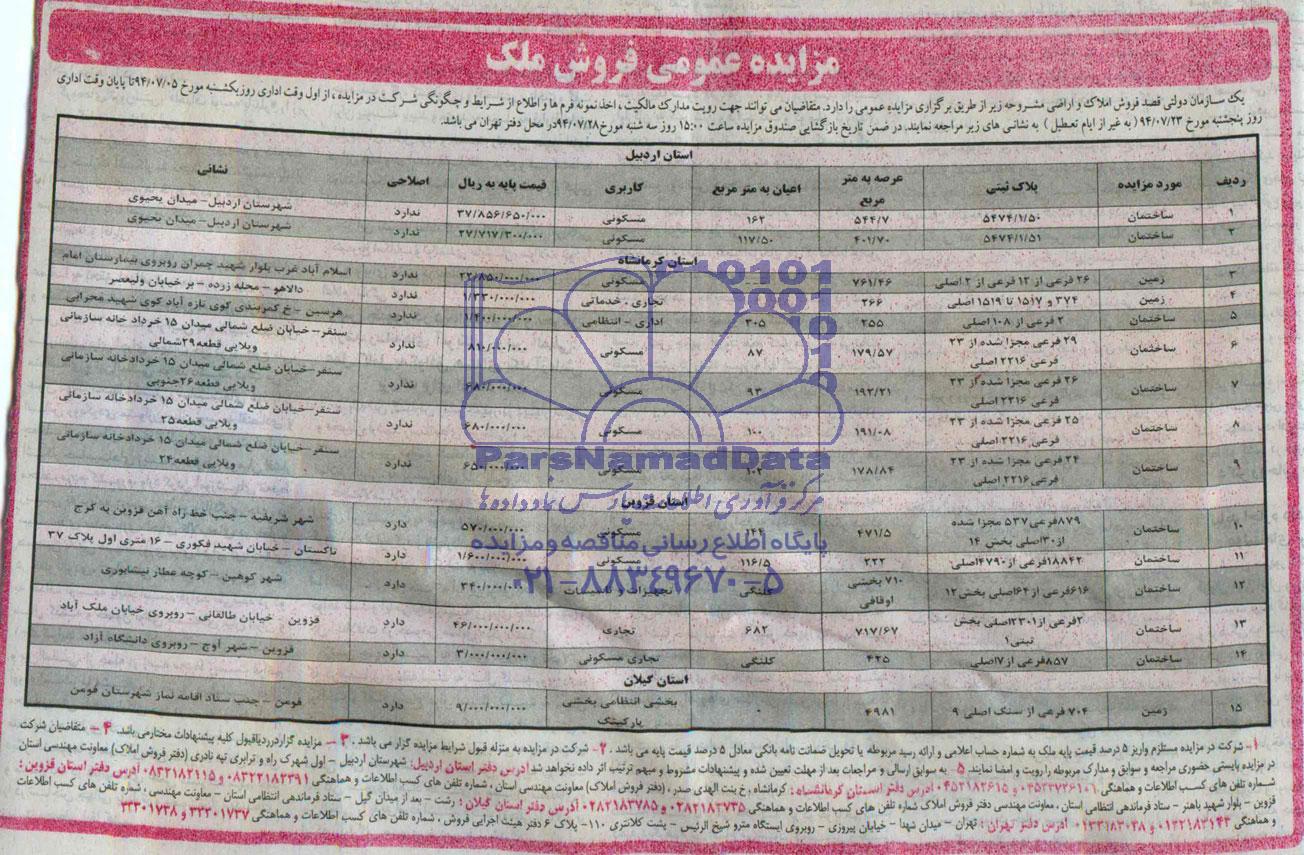 مزایده عمومی فروش ملک
یک سازمان دولتی قصد فروش املاک و اراضی مشروحه زیر از طریق برگزاری مزایده عمومی را دارد. متقاضیان می توانند جهت رویت مدارک مالکیت ، اخذ نمونه فرم ها و اطلاع از شرایط و چگونگی شرکت در مزایده ، از اول وقت اداری روز یکشنبه مورخ ۹۴/۰۷/۰۵ تا پایان وقت اداری
روز پنجشنبه مورخ ۹۴/۰۷/۲۳ ( به غیر از ایام تعطیل ) به نشانی های زیر مراجعه نمایند. در ضمن تاریخ بازگشایی صندوق مزایده ساعت ۱۵:۰۰ روز سه شنبه مورخ ۹۴/۰۷/۲۸ در محل دفتر تهران می باشد.
استان اردبیل
ردیف مورد مزایده پلاک ثبتی عرصه به متر مربع اعیان به متر مربع کاربری قیمت پایه به ریال اصلاحی نشانی
۱ ساختمان ۵۴۷۴/۱/۵۰ ۵۴۴/۷ ۱۶۲ مسکونی ۳۷/۸۵۶/۶۵۰/۰۰۰ ندارد شهرستان اردبیل- میدان یحیوی
۲ ساختمان ۵۴۷۴/۱/۵۱ ۴۰۱/۷۰ ۱۱۷/۵۰ مسکونی ۲۷/۷۱۷/۳۰۰/۰۰۰ ندارد شهرستان اردبیل- میدان یحیوی
استان کرمانشاه
۳ زمین ۲۶ فرعی از ۱۲ فرعی از ۲ اصلی ۷۶۱/۴۶ مسکونی ۲۲/۸۵۰/۰۰۰/۰۰۰ ندارد اسلام آباد غرب بلوار شهید چمران روبروی بیمارستان امام
۴ زمین ۳۷۴ و ۱۵۱۷ تا ۱۵۱۹ اصلی ۲۶۶ تجاری ، خدماتی ۱/۳۳۰/۰۰۰/۰۰۰ ندارد دالاهو - محله زرده - بر خیابان ولیعصر
۵ ساختمان ۲ فرعی از ۱۰۸ اصلی ۲۵۵ ۳۰۵ اداری - انتظامی ۱/۴۰۰/۰۰۰/۰۰۰ ندارد هرسین - خ کمربندی کوی تازه آباد کوی شهید محرابی
۶ ساختمان ۲۹ فرعی مجزا شده از ۲۳ فرعی ۲۲۱۶ اصلی ۱۷۹/۵۷ ۸۷ مسکونی ۸۱۰/۰۰۰/۰۰۰ ندارد سنقر- خیابان ضلع شمالی میدان ۱۵ خرداد خانه سازمانی ویلایی قطعه ۲۹ شمالی
۷ ساختمان ۲۶ فرعی مجزا شده از ۲۳ فرعی ۲۲۱۶ اصلی ۱۹۲/۲۱ ۹۳ مسکونی ۶۸۰/۰۰۰/۰۰۰ ندارد سنقر-خیابان ضلع شمالی میدان ۱۵ خرداد خانه سازمانی ویلایی قطعه ۲۶ جنوبی
۸ ساختمان ۲۵ فرعی مجزا شده از ۲۳ فرعی ۲۲۱۶ اصلی ۱۹۱/۰۸ ۱۰۰ مسکونی ۶۸۰/۰۰۰/۰۰۰ ندارد سنقر -خیابان ضلع شمالی میدان ۱۵ خردادخانه سازمانی ویلایی قطعه ۲۵
۹ ساختمان ۲۴ فرعی مجزا شده از ۲۳ فرعی ۲۲۱۶ اصلی ۱۷۸/۸۴ ۱۰۲ مسکونی ۶۵۰/۰۰۰/۰۰۰ ندارد سنقر -خیابان ضلع شمالی میدان ۱۵ خردادخانه سازمانی ویلایی قطعه ۲۴
استان قزوین
۱۰ ساختمان ۸۷۹ فرعی ۵۳۷ مجزا شده از ۳۰ اصلی بخش ۱۴ ۴۷۱/۵ ۱۴۴ مسکونی ۵۷۰/۰۰۰/۰۰۰ دارد شهر شریفیه - جنب خط راه آهن قزوین به کرج
۱۱ ساختمان ۱۸۸۴۲ فرعی از ۴۷۹۰ اصلی ۲۲۲ ۱۱۶/۵ مسکونی ۱/۶۰۰/۰۰۰/۰۰۰ دارد تاکستان - خیابان شهید فکوری - ۱۶ متری اول پلاک ۳۷
۱۲ ساختمان ۶۱۶ فرعی از ۶۲ اصلی بخش ۱۲ ۷۱۰ بخشی اوقافی کلنگی تجهیزات و تاسیسات ۳۴۰/۰۰۰/۰۰۰ دارد شهر کوهین - کوچه عطار نیشابوری
۱۳ ساختمان ۲ فرعی از ۲۳۰۱ اصلی بخش ثبتی ۱ ۷۱۷/۶۷ ۶۸۲ تجاری ۴۶/۰۰۰/۰۰۰/۰۰۰ دارد قزوین - خیابان طالقانی - روبروی خیابان ملک آباد
۱۴ ساختمان ۸۵۷ فرعی از ۷ اصلی ۴۲۵ کلنگی تجاری مسکونی ۳/۰۰۰/۰۰۰/۰۰۰ دارد قزوین - شهر آوج - روبروی دانشگاه آزاد
استان گیلان
۱۵ زمین ۷۰۴ فرعی از سنگ اصلی ۹ ۴۹۸۱ ۰ بخشی انتظامی بخشی پارکینگ ۹/۰۰۰/۰۰۰/۰۰۰ دارد فومن - جنب ستاد اقامه نماز شهرستان فومن
۱- شرکت در مزایده مستلزم واریز ۵ درصد قیمت پایه ملک به شماره حساب اعلامی و ارائه رسید مربوطه یا تحویل ضمانت نامه بانکی معادل ۵ درصد قیمت پایه می باشد . ۲- شرکت در مزایده به منزله قبول شرایط مزایده گزار می باشد . ۳ – مزایده گزار در رد یا قبول کلیه پیشنهادات مختار می باشد. ۴ – متقاضیان شرکت
در مزایده بایستی حضوری مراجعه و سوابق و مدارک مربوطه را رویت و امضا نمایند. ۵ به سوابق ارسالی و مراجعات بعد از مهلت تعیین شده و پیشنهادات مشروط و مبهم ترتیب اثر داده نخواهد شد آدرس دفتر استان اردبیل: شهرستان اردبیل - اول شهرک راه و ترابری تپه نادری (دفتر فروش املاک) معاونت مهندسی استان
شماره تلفن های کسب اطلاعات و هماهنگی ۰۴۵۳۳۷۲۶۱۰۱ و ۰۴۵۲۱۸۲۶۱۵ آدرس دفتر استان کرمانشاه : کرمانشاه ، خ بنت الهدی صدر ، (دفتر فروش املاک) معاونت مهندسی استان ، شماره تلفن های کسب اطلاعات و هماهنگی ۰۸۳۲۲۱۸۲۳۹۱ و ۰۸۳۲۱۸۲۱۱۵ آدرس دفتر استان قزوین :
قزوین - بلوار شهید باهنر - ستاد فرماندهی انتظامی استان ، معاونت مهندسی دفتر فروش املاک شماره تلفن های کسب اطلاعات و هماهنگی ۰۲۸۲۱۸۲۷۳۵ و ۰۲۸۲۱۸۳۷۸۵ آدرس دفتر استان گیلان : رشت - بعد از میدان گیل - ستاد فرماندهی انتظامی استان - معاونت مهندسی ، شماره تلفن های کسب اطلاعات
و هماهنگی ۰۱۳۲۱۸۳۱۴۴ و ۰۱۳۳۱۸۳۰۳۸ آدرس دفتر تهران : تهران - میدان شهدا - خیابان پیروزی - روبروی ایستگاه مترو شیخ الرئیس - پشت کلانتری ۱۱۰- پلاک ۶ دفتر هیئت اجرایی فروش ، شماره تلفن های کسب اطلاعات و هماهنگی ۳۳۲۰۱۷۳۷ و ۳۳۳۰۱۷۳۸
ParsNamadData
مرکز فرآوری اطلاعات پارس نماد داده ها
پایگاه اطلاع رسانی مناقصه و مزایده
۰۲۱-۸۸۳۴۹۶۷۰-۵